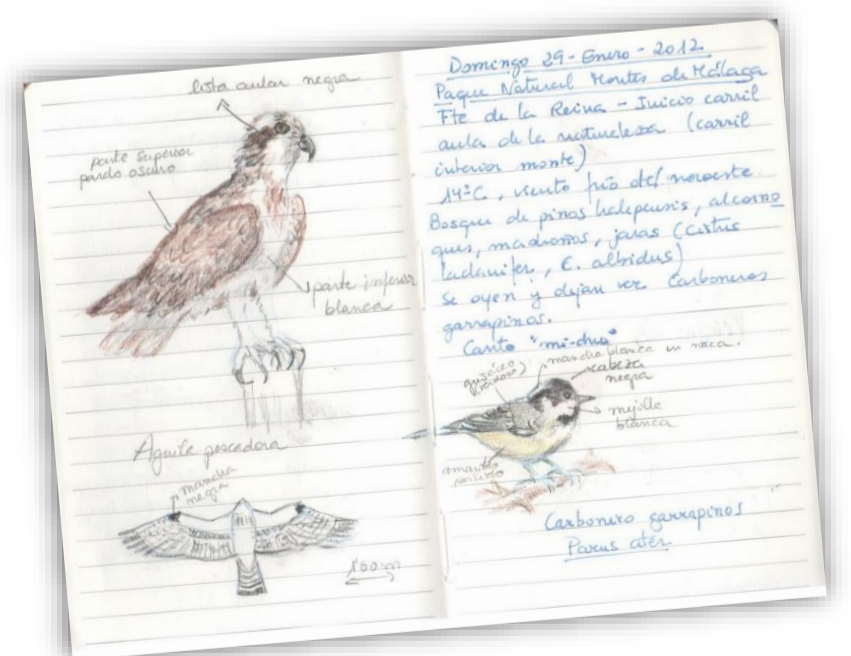 lista ocular negra
parte superior
pardo oscuro
parte inferior
blanca
Aguila pescadora
mancha
negra
1'60 m
Domingo 29-Enero-2012
Paque Natural Montes de Málaga
Fte de la Reina - Inicio carril
aula de la naturaleza (carril
interior monte)
14ºC, viento frío del noroeste
Bosque de pinos halepensis, alcorno
ques, madroños, jaras (Cistus
ladanifer, C. albidus)
Se oyen y dejan ver Carboneros
garrapinos.
Canto "mi-chu"
mancha blanca en nuca.
cabeza
negra
mejilla
blanca
Carbonero garrapinos
Parus ater